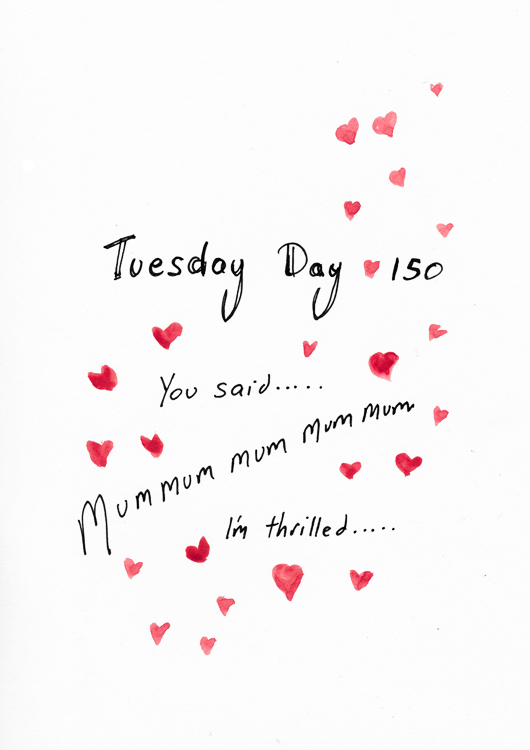 Tuesday Day 150
You said.....
Mum mum mum mum mum
I'm thrilled.....